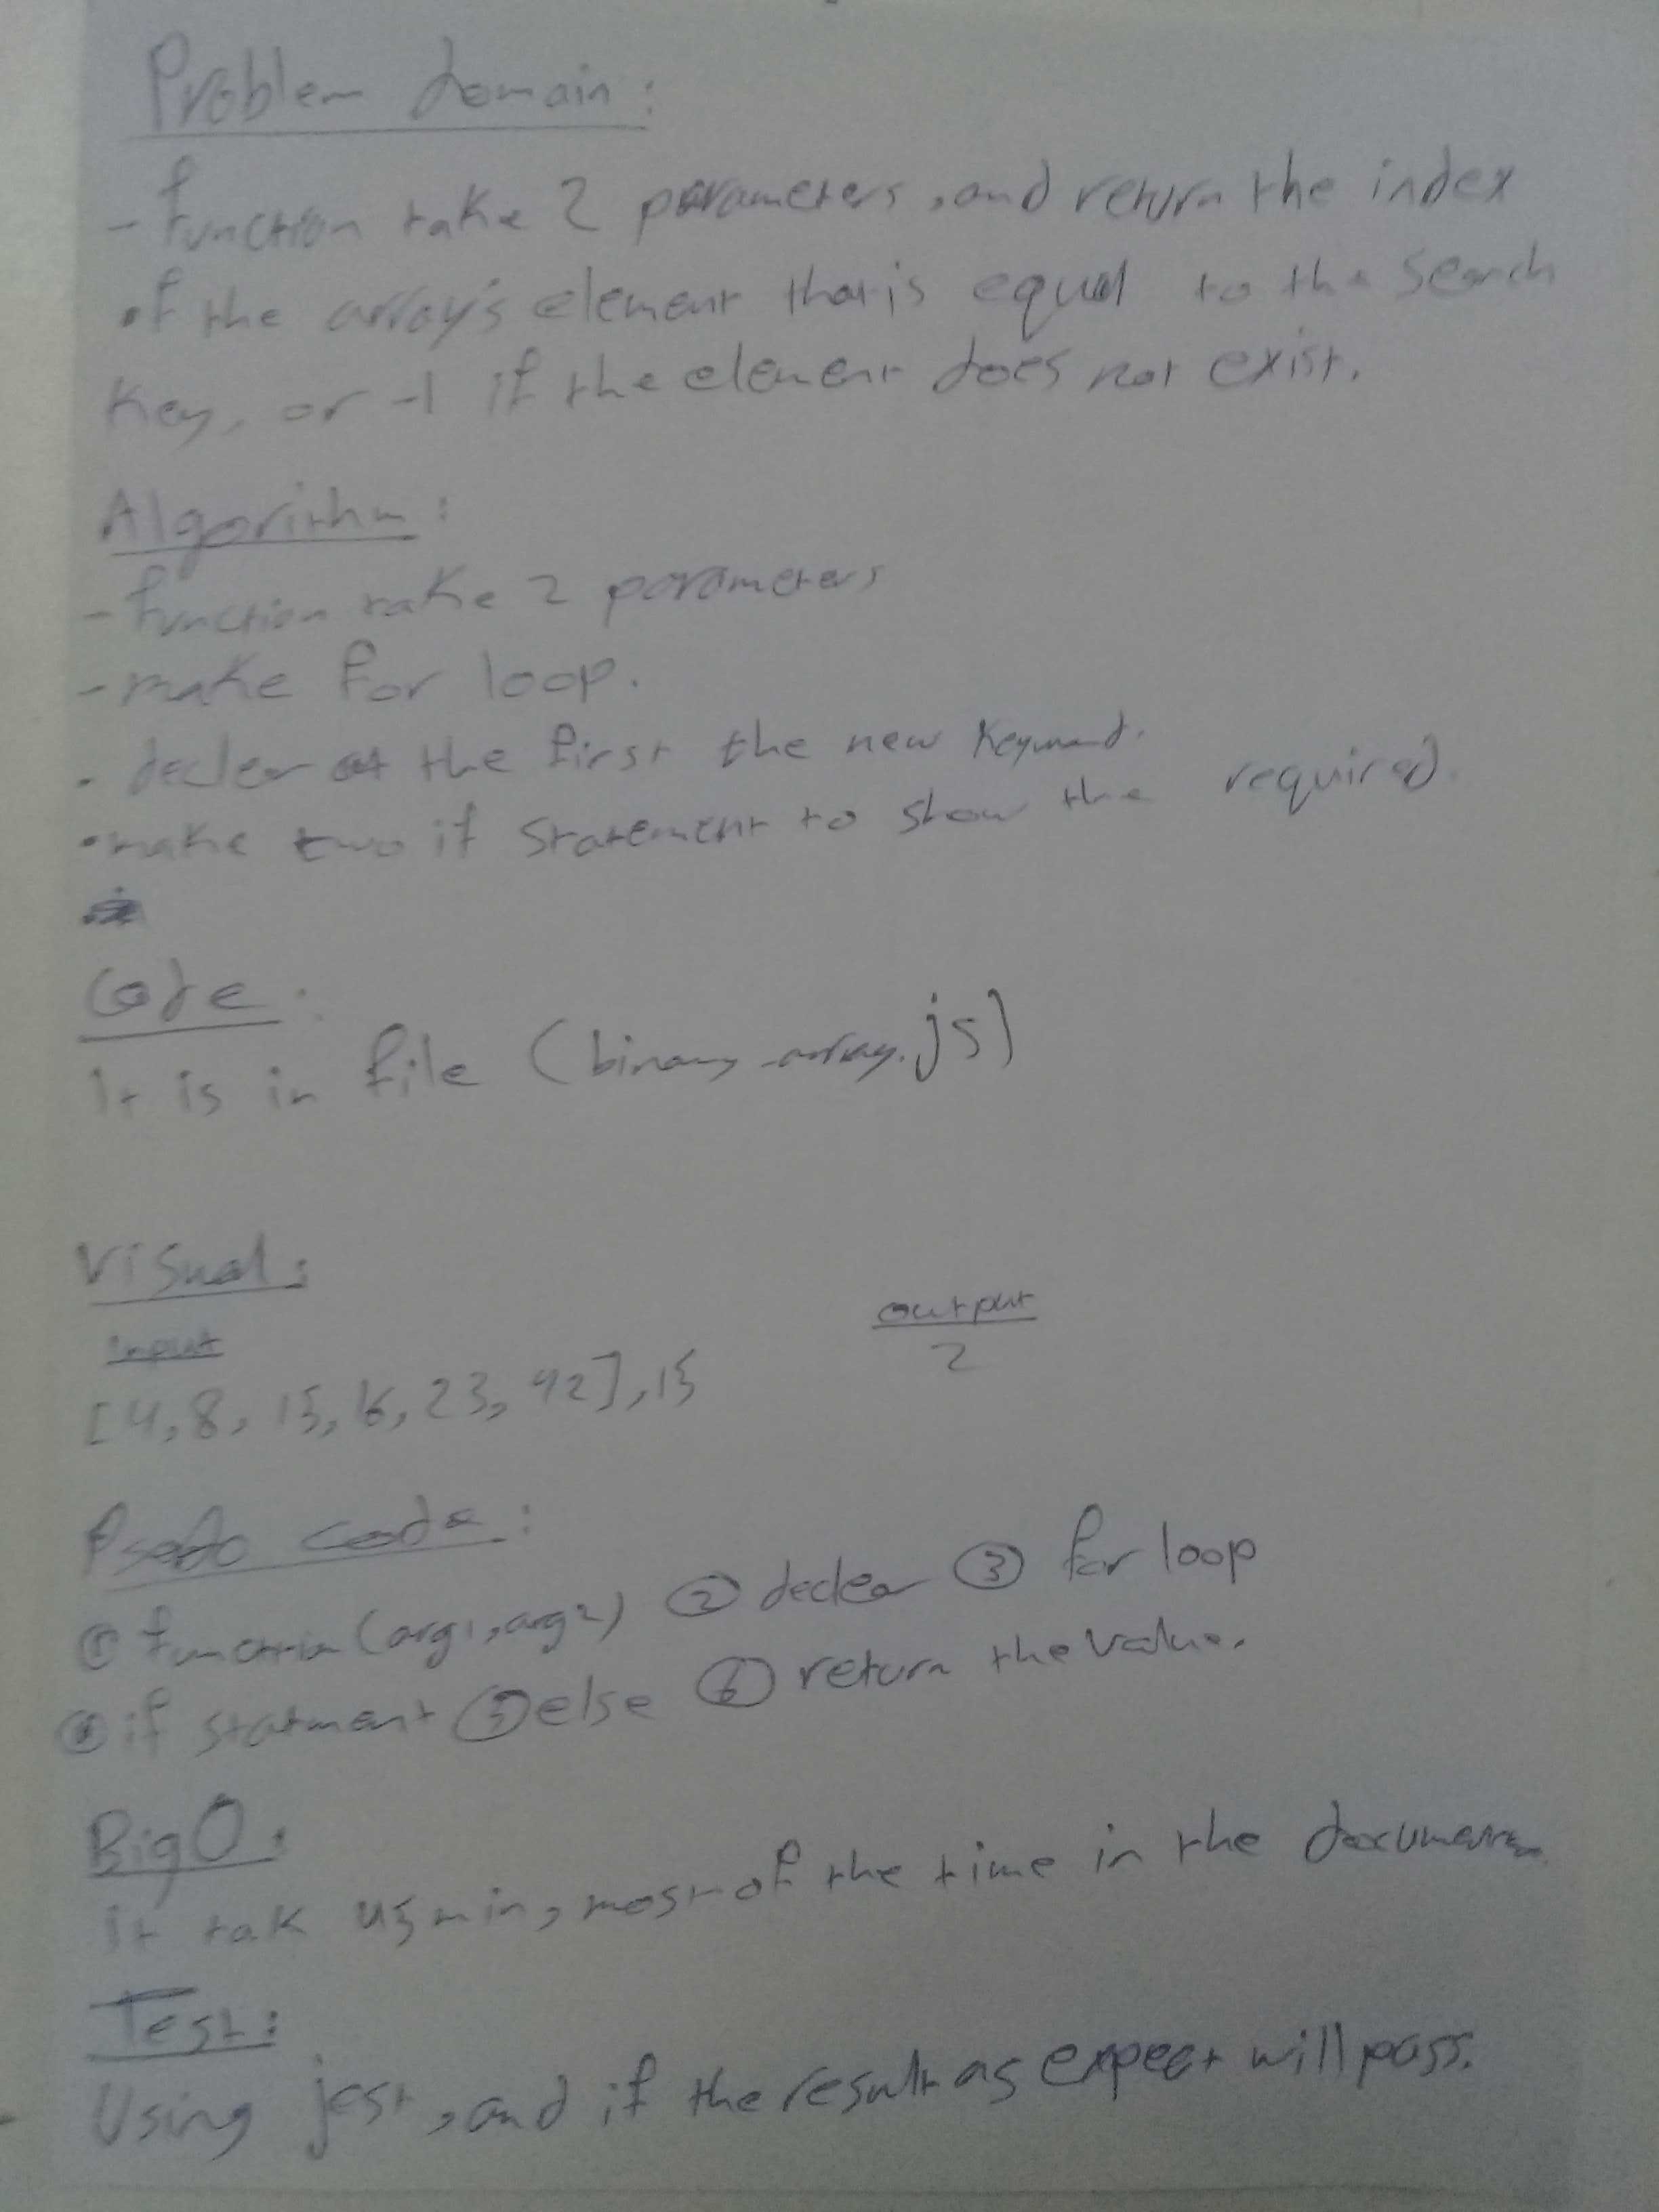 Problem domain:
- function take 2 parameters, and return the index
of the array's element that is equal to the search
key, or -1 if the element does not exist.
Algorithm:
- function take 2 parameters
- make for loop.
. decler at the first the new keyword.
. make two if statement to show the required.
Code:
it is in file (binary_array.js)
Visual:
input
output
[4,8, 15, 16, 23, 42], 15
2
Psedo code:
① function (arg1, arg2) ② decler ③ for loop
④ if statment ⑤ else ⑥ return the value.
Big O:
it tak 45 min, most of the time in the
Test:
Using jest, and if the result as expect will pass.